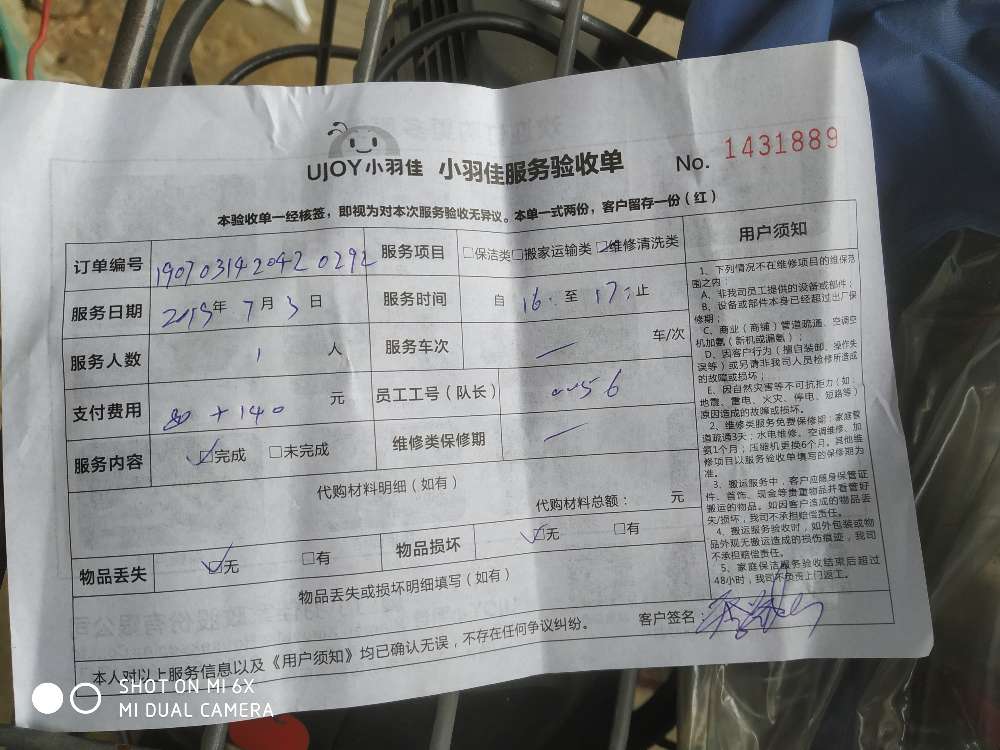 UJOY小羽佳 小羽佳服务验收单 No. 1431889
本验收单一经核签，即视为对本次服务验收无异议。本单一式两份，客户留存一份（红）
订单编号 190703142042 0292 服务项目 □保洁类□搬家运输类☑维修清洗类
服务日期 2019年 7月 3日 服务时间 自 16: 至 17: 止
服务人数 1 人 服务车次 / 车/次
支付费用 + 140 元 员工工号（队长） 0056
服务内容 ☑完成 □未完成 维修类保修期 /
代购材料明细（如有）
代购材料总额： 元
物品丢失 ☑无 □有 物品损坏 ☑无 □有
物品丢失或损坏明细填写（如有）
客户签名：
本人对以上服务信息以及《用户须知》均已确认无误，不存在任何争议纠纷。
用户须知
1、下列情况不在维修项目的维保范
围之内：
A、非我司员工提供的设备或部件；
B、设备或部件本身已经超过出厂保
修期；
C、商业（商铺）管道疏通、空调空
机加氨（新机或漏氨）；
D、因客户行为（擅自装卸、操作失
误等）或另请非我司人员检修所造成
的故障或损坏；
E、因自然灾害等不可抗拒力（如：
地震、雷电、火灾、停电、短路等）
原因造成的故障或损坏。
2、维修类服务免费保修期：家庭管
道疏通3天；水电维修、空调维修、加
氨1个月；压缩机更换6个月。其他维
修项目以服务验收单填写的保修期为
准。
3、搬运服务中，客户应随身保管证
件、首饰、现金等贵重物品并看管好
搬运的物品。如因客户造成的物品丢
失/损坏，我司不承担赔偿责任。
4、搬运服务验收时，如外包装或物
品外观无搬运造成的损伤痕迹，我司
不承担赔偿责任。
5、家庭保洁服务验收结束后超过
48小时，我司不负责上门返工。
SHOT ON MI 6X
MI DUAL CAMERA